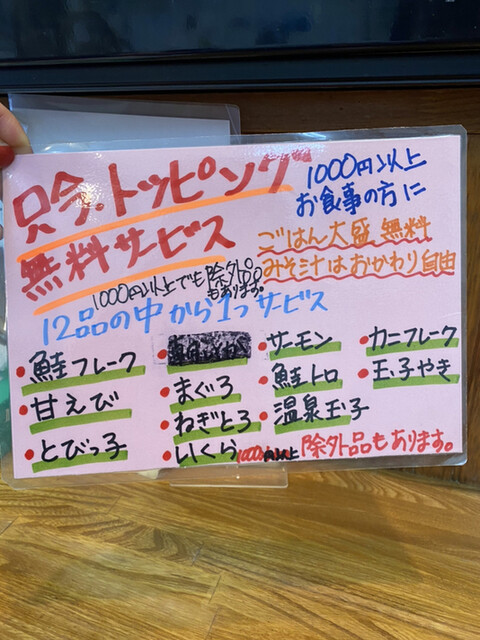 只今トッピング
無料サービス
1000円以上
お食事の方に
ごはん大盛 無料
みそ汁はおかわり自由
1000円以上でも除外品
もあります。
12品の中から1つサービス
・鮭フレーク
・甘えび
・とびっ子
・まぐろ
・ねぎとろ
・いくら1000円以上
・サーモン
・鮭トロ
・温泉玉子
・カニフレーク
・玉子やき
除外品もあります。